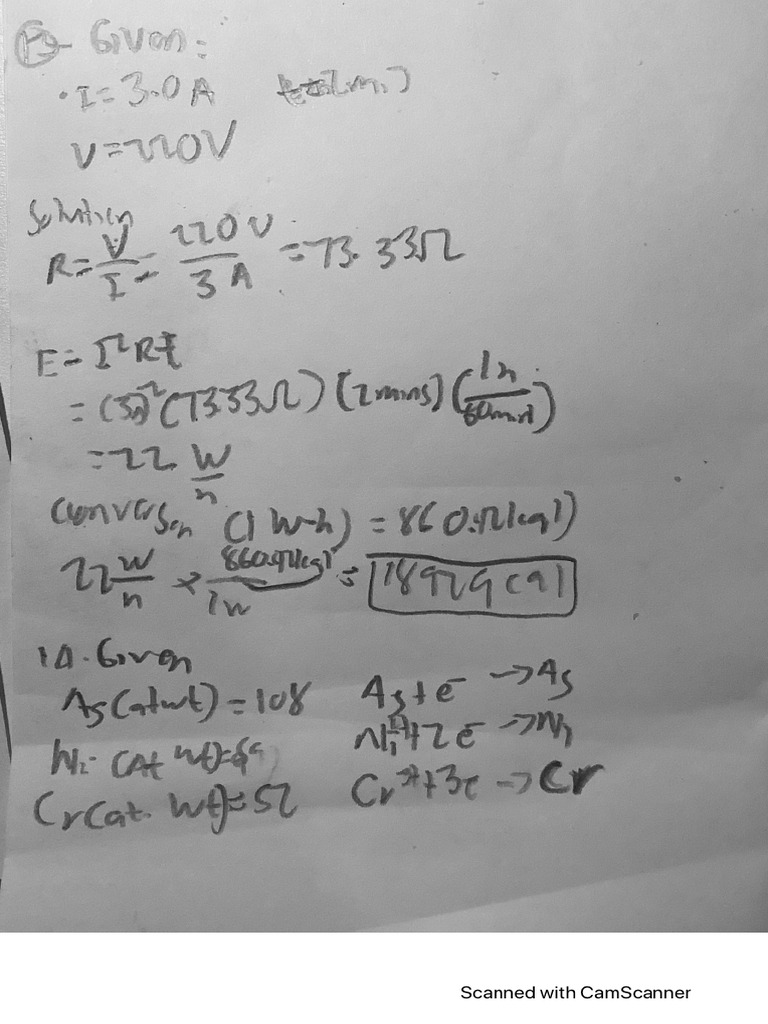 Given:
• I = 3.0 A
V = 220V
Solution
R = V/I = 220 V/3 A = 73.33Ω
E = I²Rt
= (3A)² (73.33Ω) (2mins) (1h/60min)
= 22 W/h
Conversion (1 W-h) = 860.421cal)
22 W/h × 860.421cal/1w = 18929 cal
1A. Given
Ag (at wt) = 108 Ag + e⁻ → Ag
Ni - (At wt) = 59 Ni + 2e⁻ → Ni
Cr (at. wt) = 52 Cr³⁺ + 3e → Cr
Scanned with CamScanner